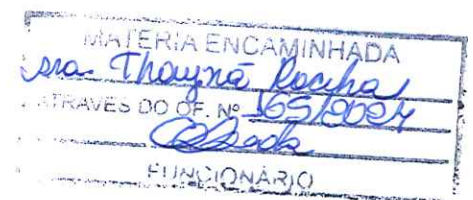 MATERIA ENCAMINHADA
sra. Thayná Rocha
ATRAVES DO OF. Nº 165/2024
FUNCIONÁRIO